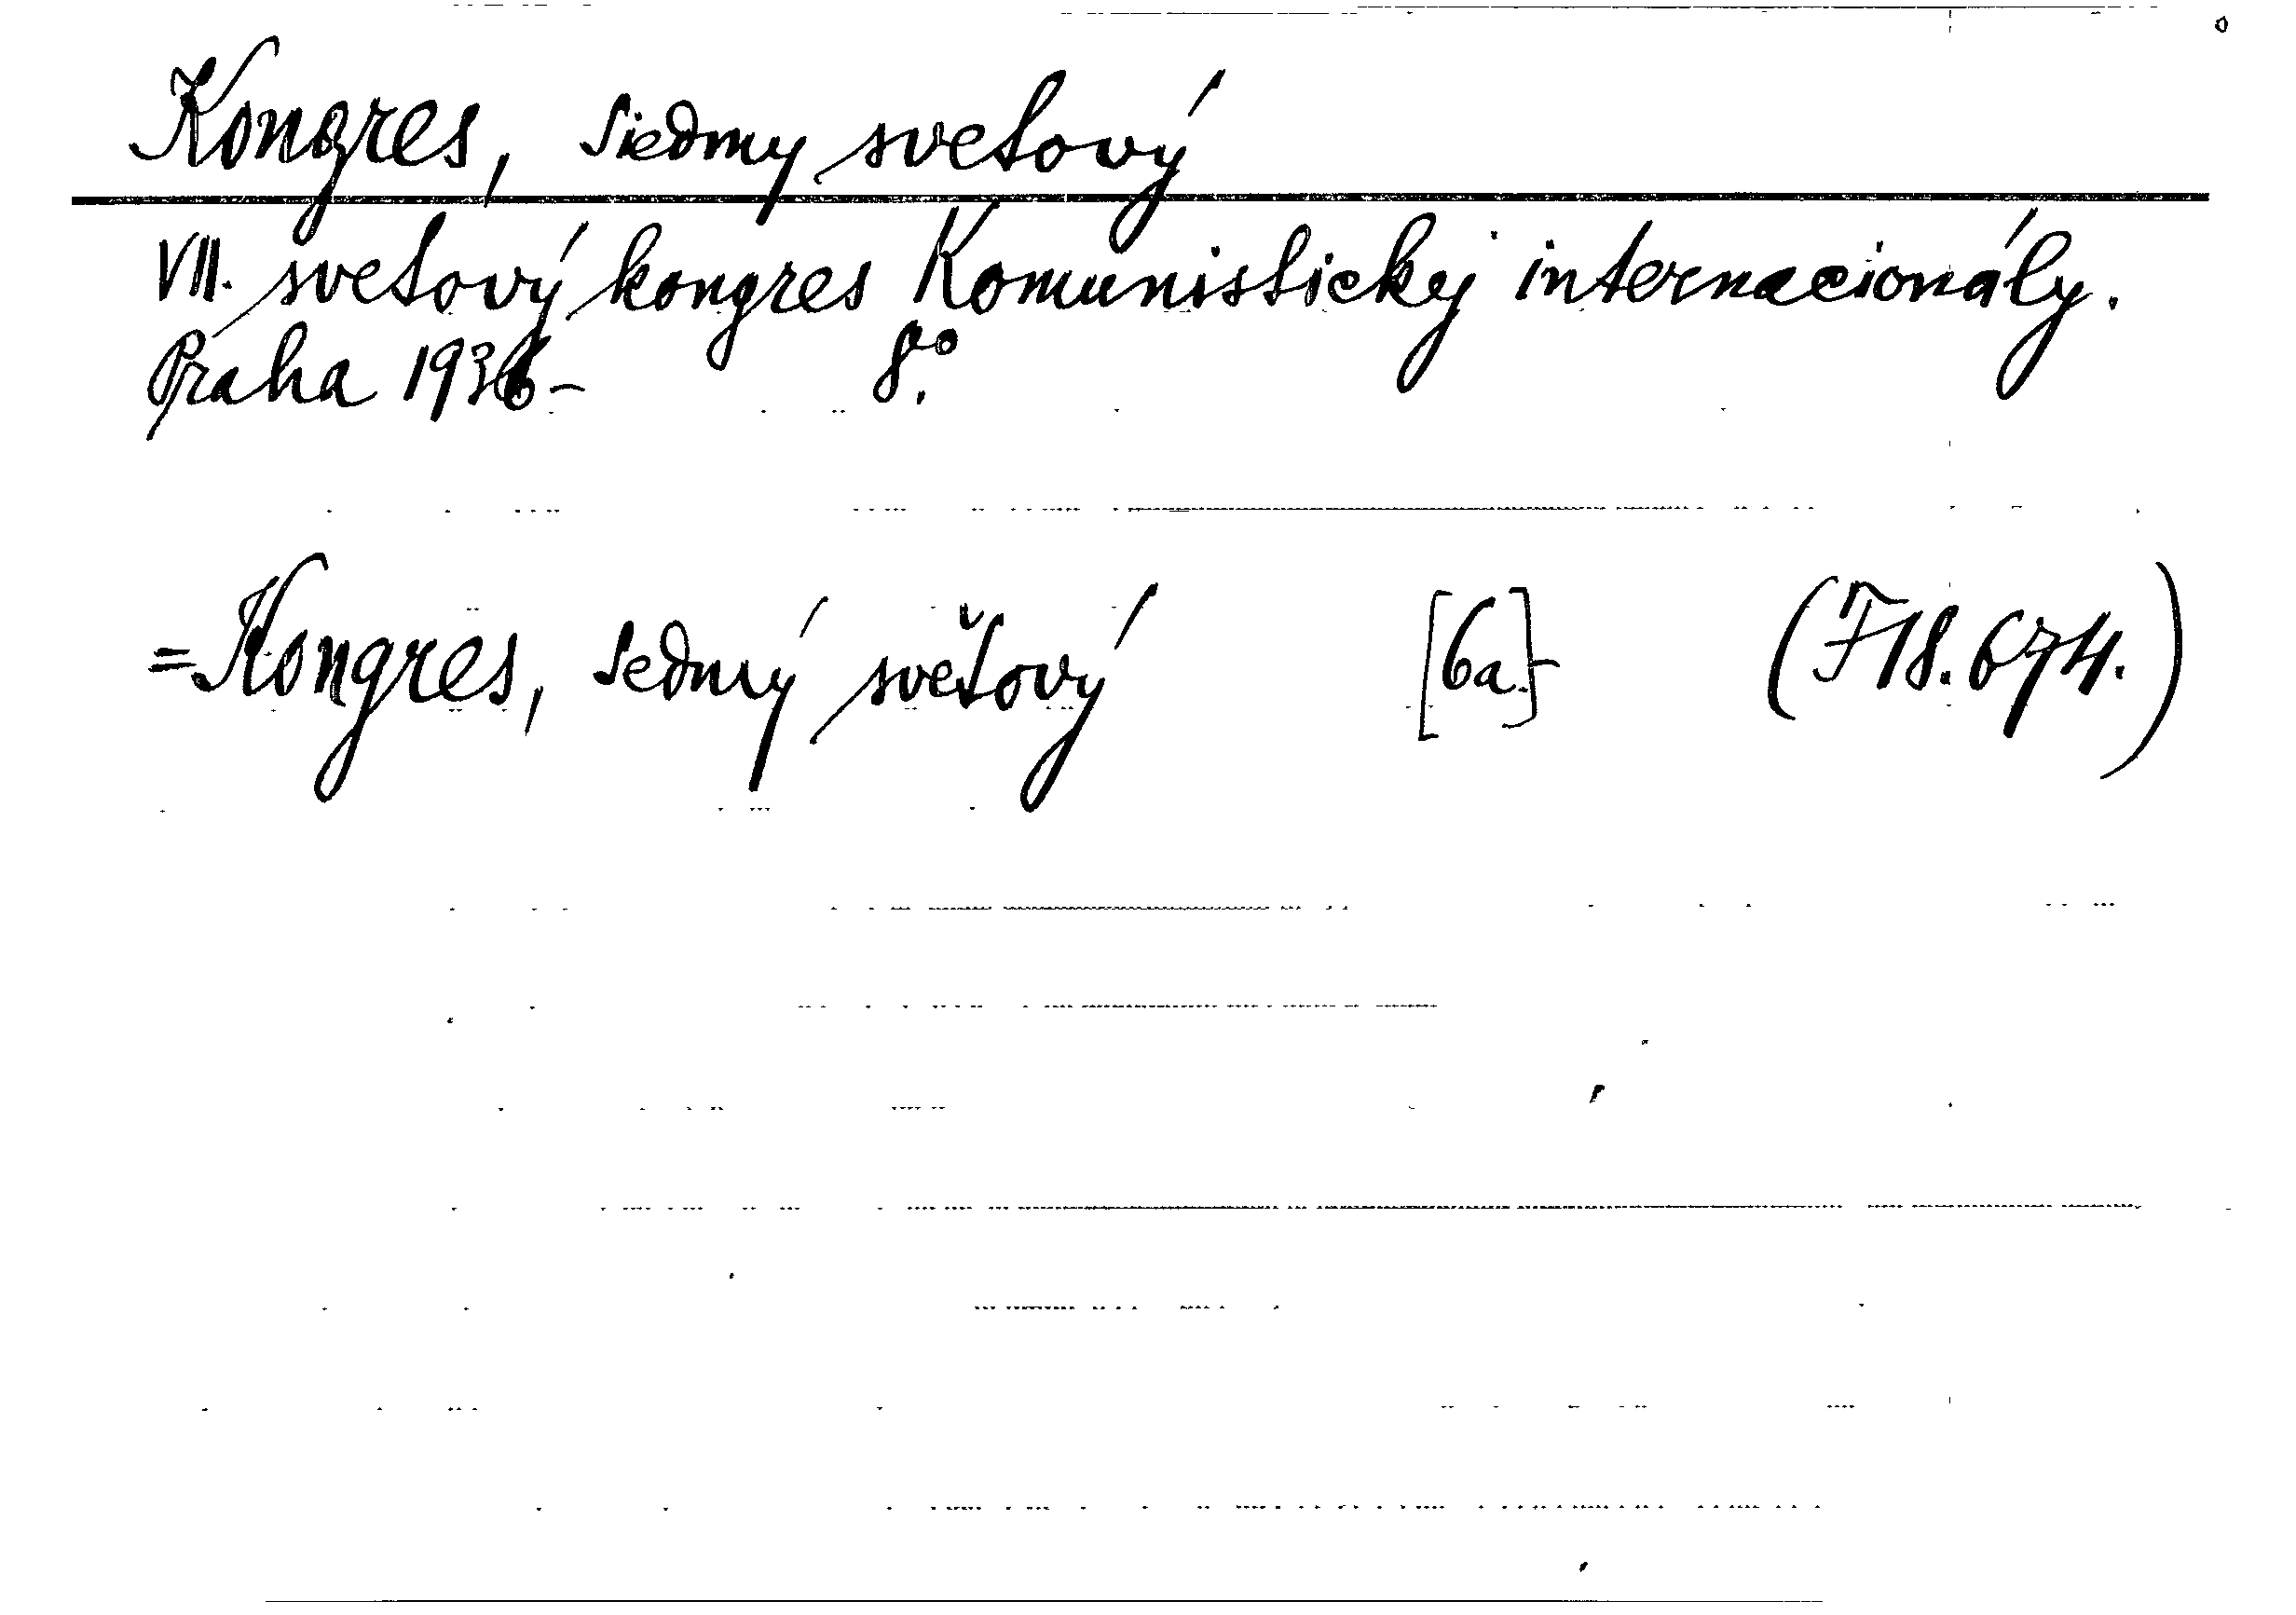 Kongres, siedmy svetový
VII. svetový kongres Komunistickej internacionály.
Praha 1936- 8.°
=Kongres, sedmý světový [6a.]- (F18.674.)